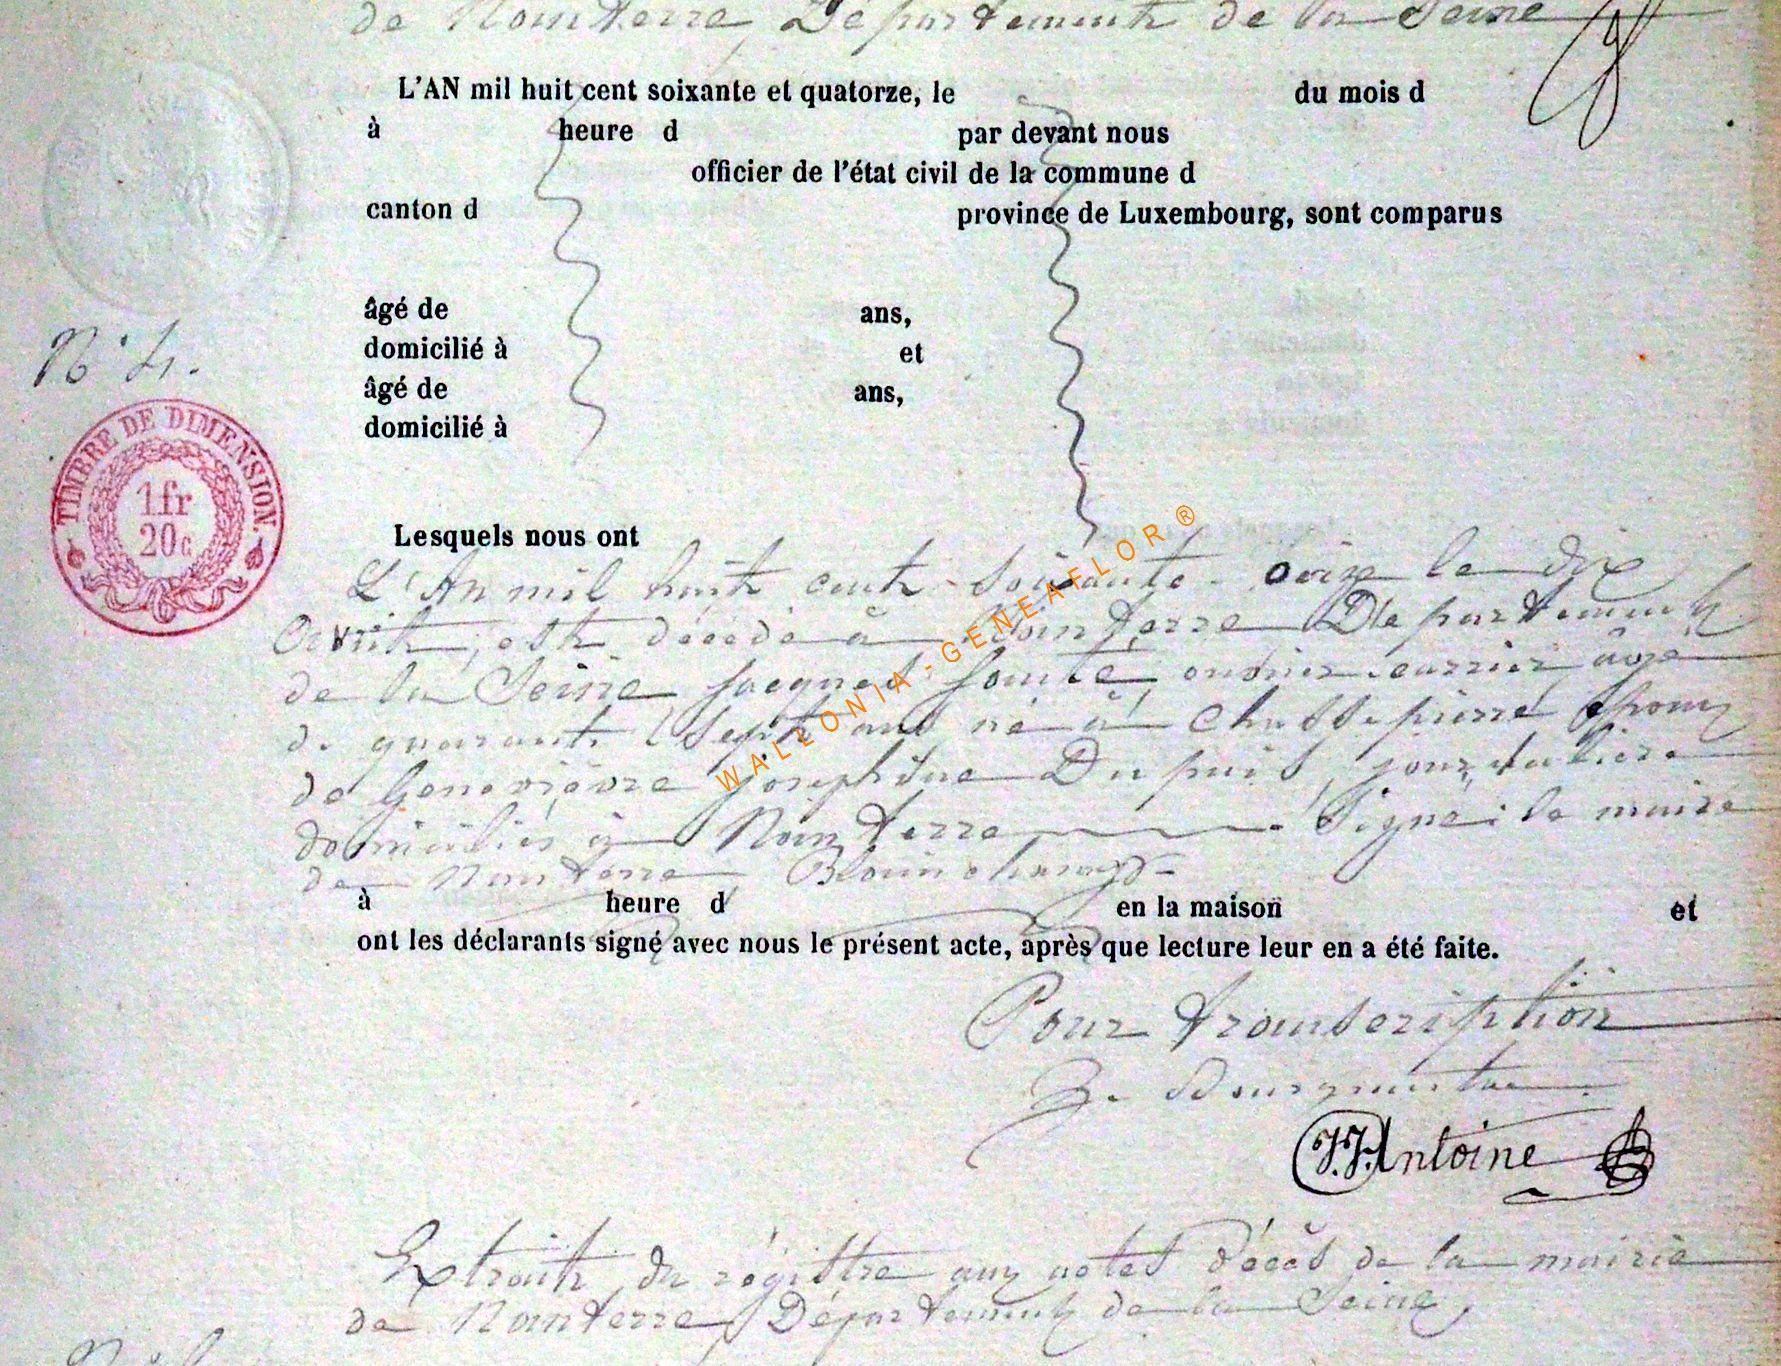 de Nanterre, Département de la Seine
L'AN mil huit cent soixante et quatorze, le du mois d
à heure d par devant nous
officier de l'état civil de la commune d
canton d province de Luxembourg, sont comparus
N° 4.
âgé de ans,
domicilié à et
âgé de ans,
domicilié à
TIMBRE DE DIMENSION.
1 fr
20 c
Lesquels nous ont
L'An mil huit cent soixante le dix
Avril, est décédé à Nanterre Département
de la Seine Jacques ouvrier carrier, âgé
de quarante sept ans né à Chassepierre époux
de Genevièvre Joséphine Dupuis, journalière
domiciliés à Nanterre Signé: le maire
de Nanterre
à heure d en la maison et
ont les déclarants signé avec nous le présent acte, après que lecture leur en a été faite.
Pour transcription
Bourgmestre
J.J. Antoine
Extrait du régistre aux actes décès de la mairie
de Nanterre, Département de la Seine,
WALLONIA-GENEAFLOR ®